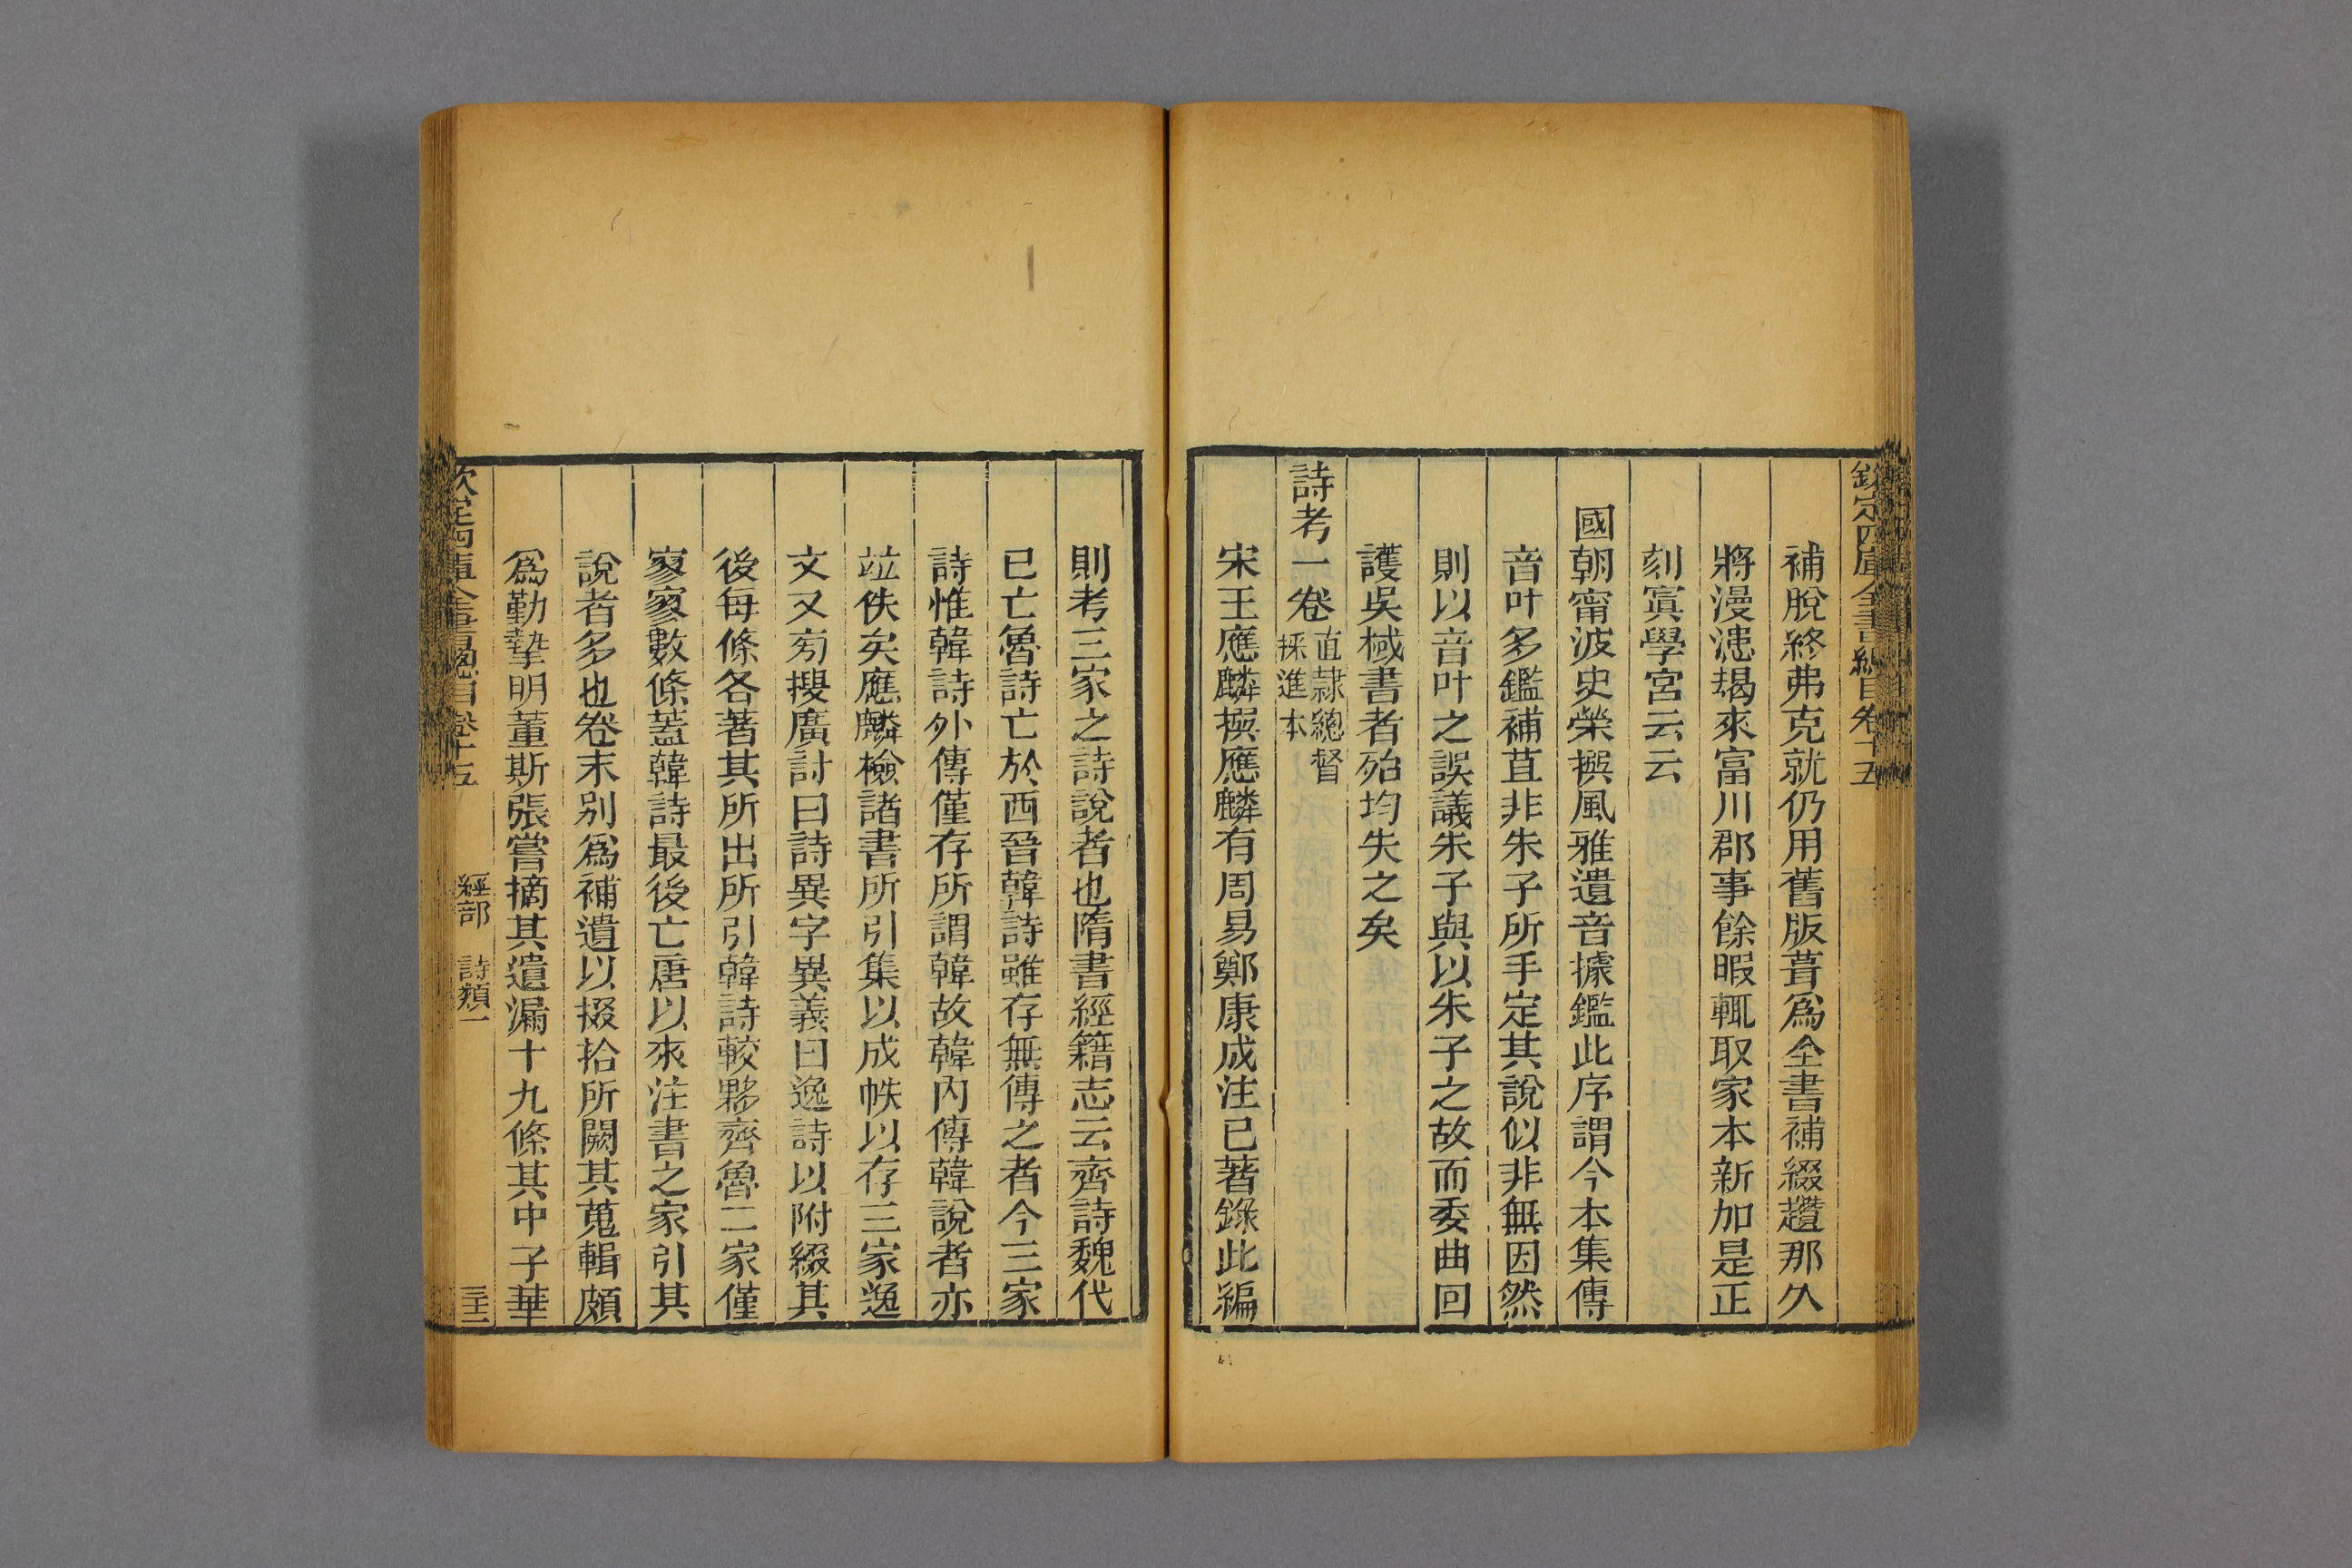 欽定四庫全書總目卷十五
補脫終弗克就仍用舊版葺爲全書補綴趲那久
將漫漶朅來富川郡事餘暇輒取家本新加是正
刻寘學宮云云
國朝甯波史榮撰風雅遺音據鑑此序謂今本集傳
音叶多鑑補苴非朱子所手定其說似非無因然
則以音叶之誤議朱子與以朱子之故而委曲回
護吳棫書者殆均失之矣
詩考一卷直隸總督採進本
宋王應麟撰應麟有周易鄭康成注已著錄此編
則考三家之詩說者也隋書經籍志云齊詩魏代
已亡魯詩亡於西晉韓詩雖存無傳之者今三家
詩惟韓詩外傳僅存所謂韓故韓內傳韓說者亦
竝佚矣應麟檢諸書所引集以成帙以存三家逸
文又旁搜廣討曰詩異字異義曰逸詩以附綴其
後每條各著其所出所引韓詩較夥齊魯二家僅
寥寥數條蓋韓詩最後亡唐以來注書之家引其
說者多也卷末别爲補遺以掇拾所闕其蒐輯頗
爲勤摯明董斯張嘗摘其遺漏十九條其中子華
欽定四庫全書總目卷十五 經部 詩類一